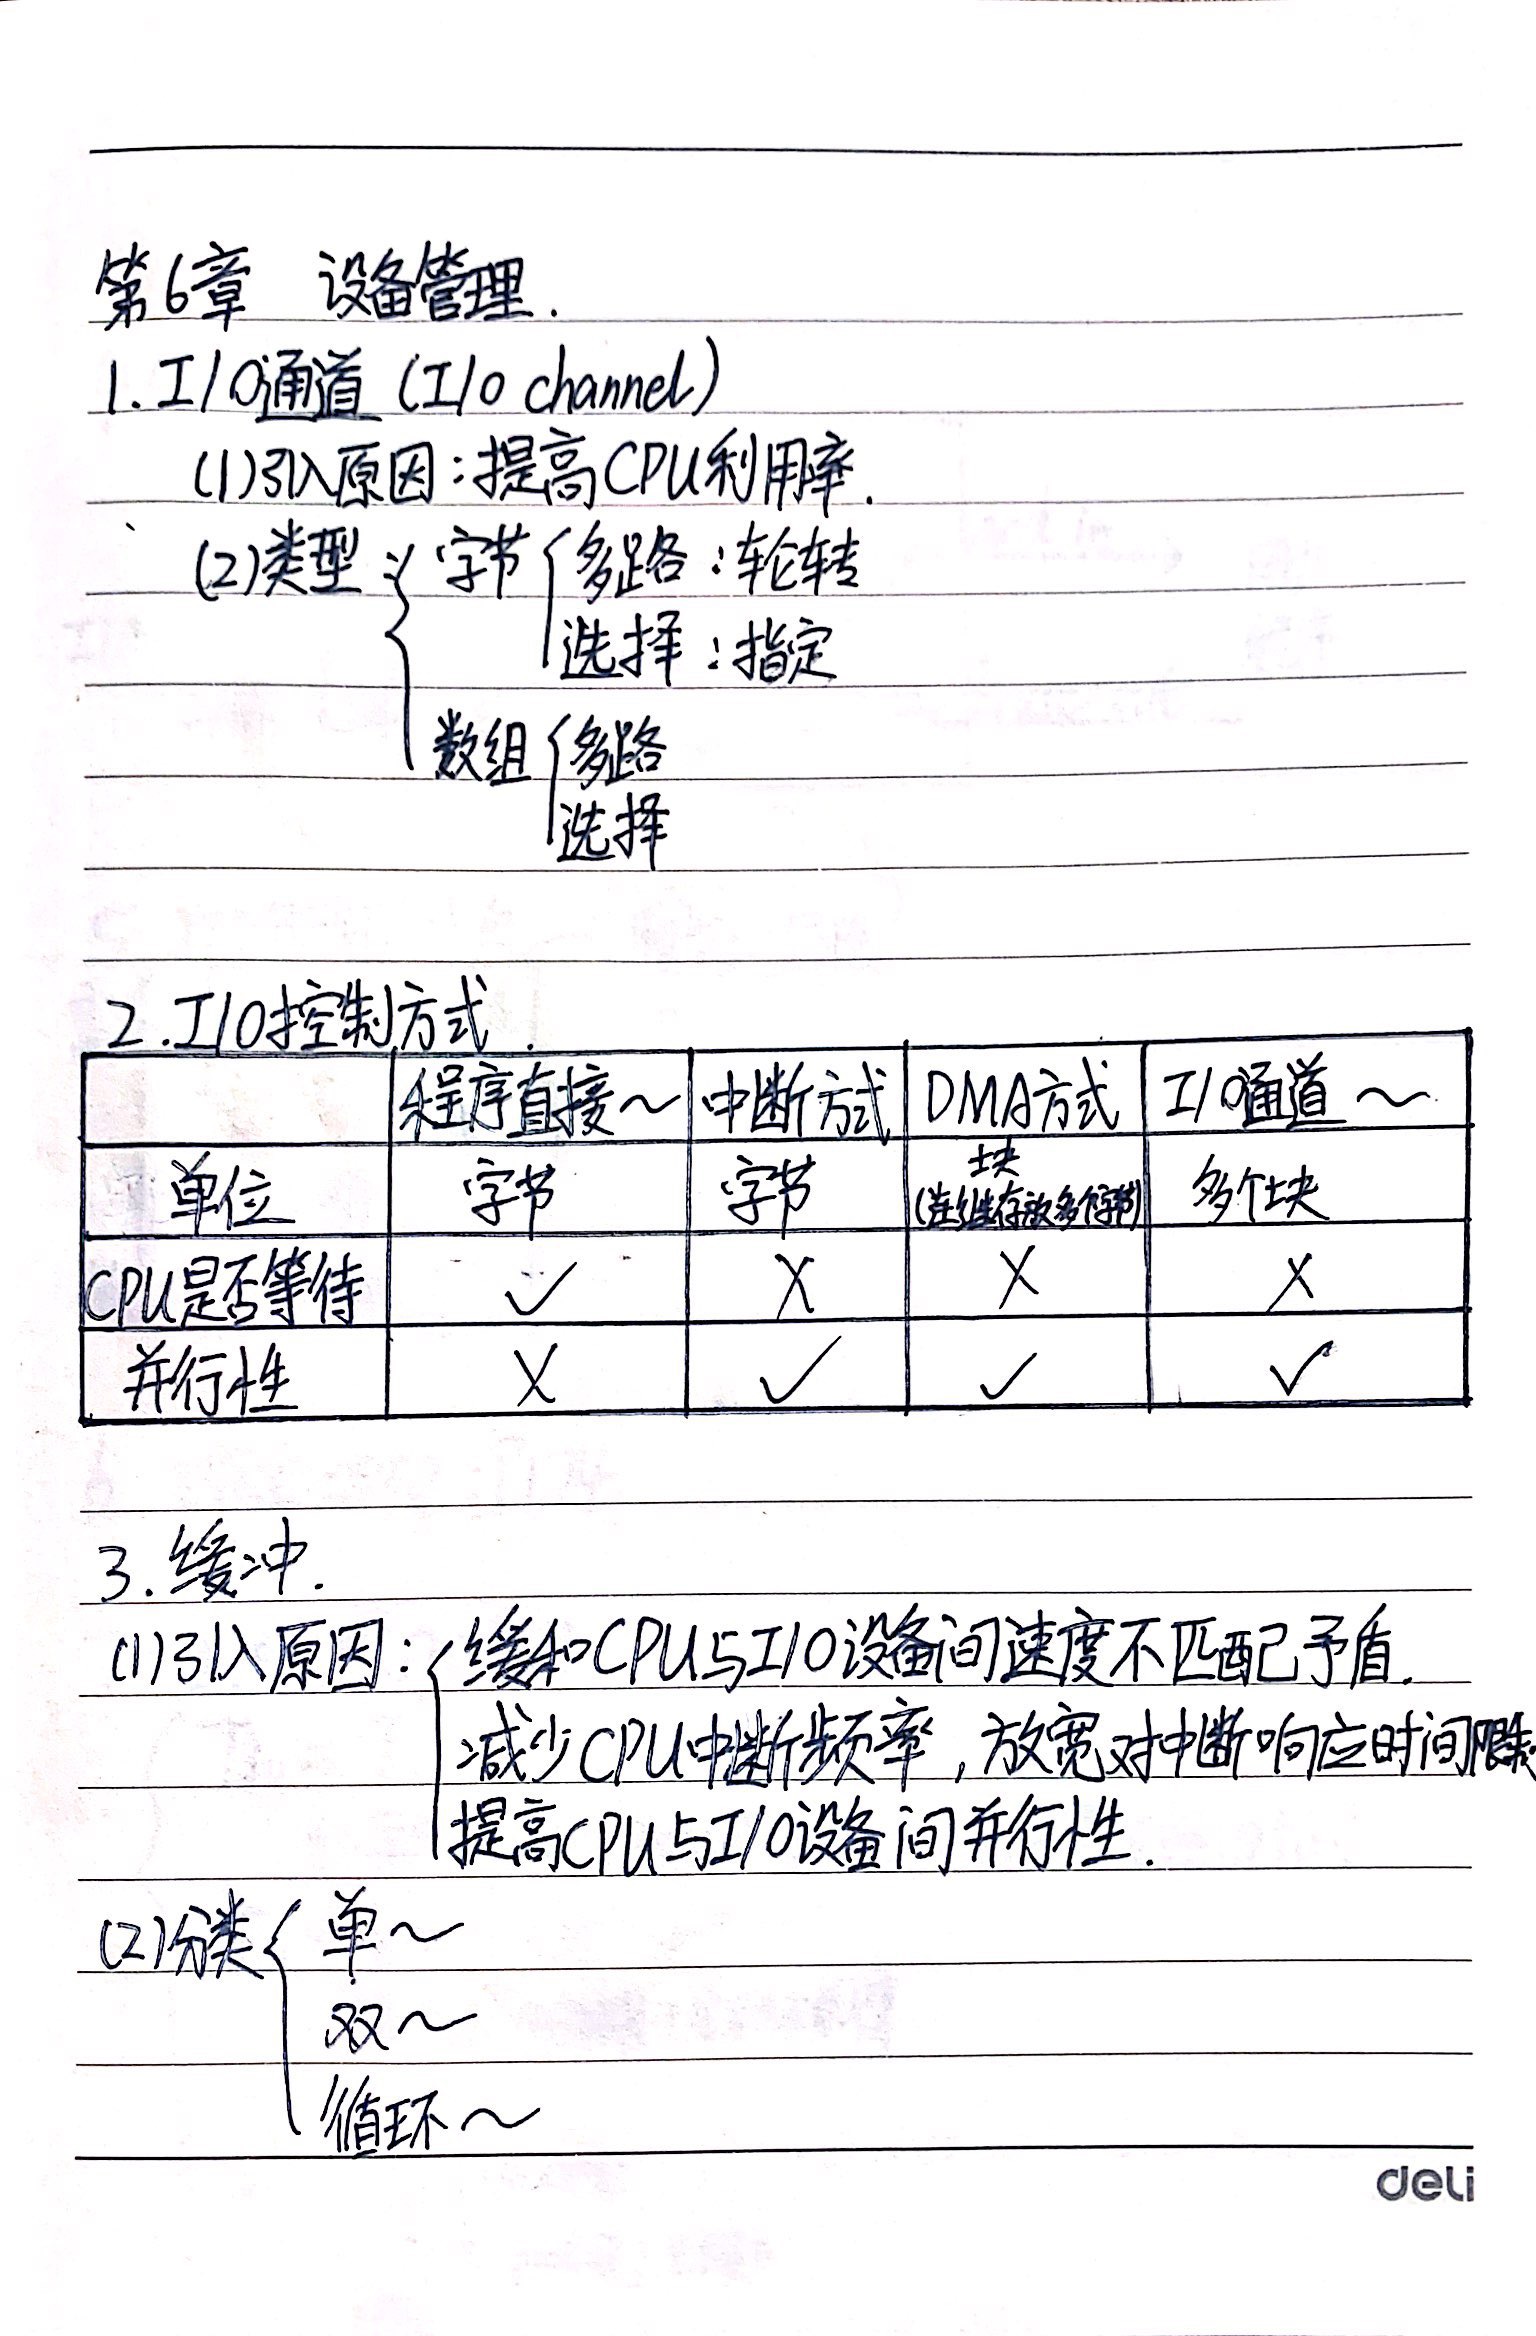 第6章 设备管理.
1. I/O通道 (I/O channel)
(1)引入原因:提高CPU利用率.
(2)类型: { 字节 { 多路:轮转
选择:指定
数组 { 多路
选择
2. I/O控制方式.
程序直接~ 中断方式 DMA方式 I/O通道~
单位 字节 字节 块 (连续存放多个字节) 多个块
CPU是否等待 ✓ X X X
并行性 X ✓ ✓ ✓
3. 缓冲.
(1)引入原因: { 缓和CPU与I/O设备间速度不匹配矛盾.
减少CPU中断频率,放宽对中断响应时间限制
提高CPU与I/O设备间并行性.
(2)分类 { 单~
双~
循环~
deli